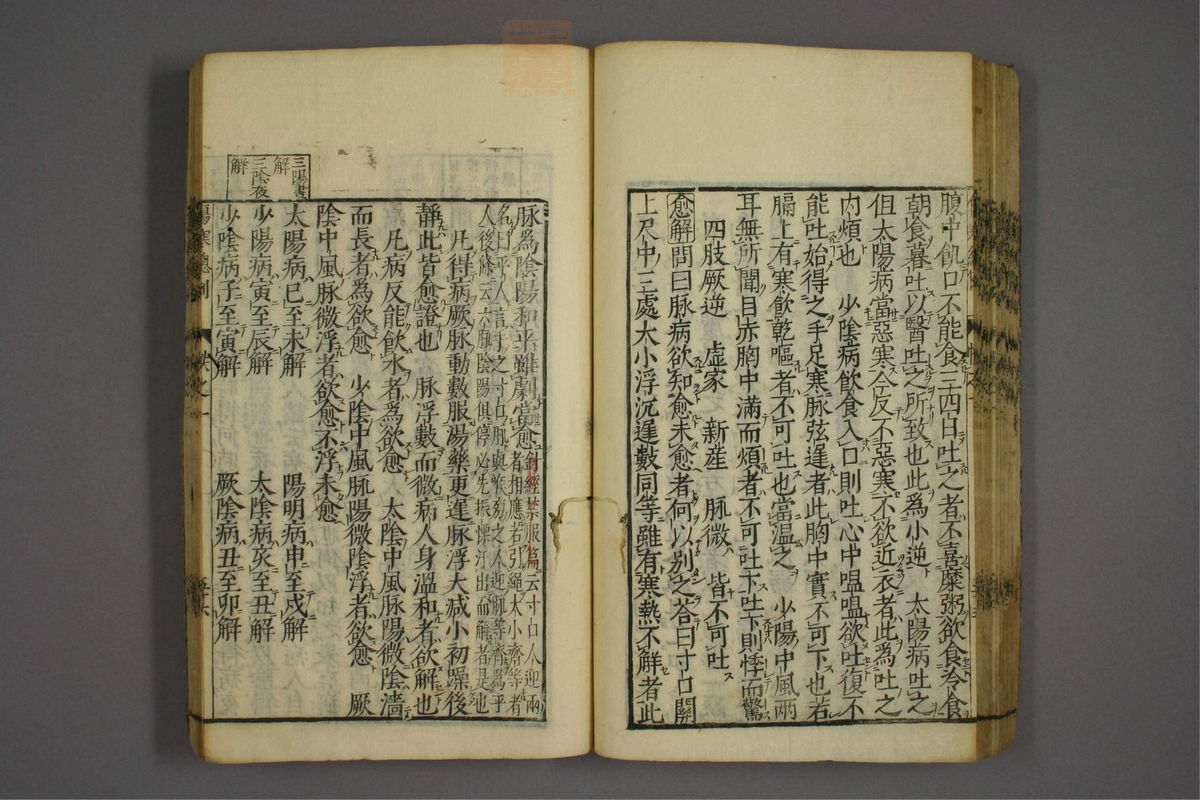 腹中飢口不能食三四日吐之者不喜糜粥欲食冷食
朝食暮吐以醫吐之所致也此爲小逆　太陽病吐之
但太陽病當惡寒今反不惡寒不欲近衣者此爲吐之
内煩也　少陰病飲食入口則吐心中嗢嗢欲吐復不
能吐始得之手足寒脉弦遲者此胸中實不可下也若
膈上有寒飲乾嘔者不可吐也當温之　少陽中風兩
耳無所聞目赤胸中滿而煩者不可吐下吐下則悸而驚
四肢厥逆　虚家　新産　脉微　皆不可吐
愈解問曰脉病欲知愈未愈者何以別之荅曰寸口關
上尺中三處大小浮沉遲數同等雖有寒熱不解者此
脉爲陰陽和平雖劇當愈針經禁服篇云寸口人迎兩
者相應若引繩大小齊等者
名曰平人
脉陰陽俱停必先振慄汗出而解者是也
凡得病厥脉動數服湯藥更遲脉浮大减小初躁後
靜此皆愈證也　脉浮數而微病人身温和者欲解也
凡病反能飲水者爲欲愈　太陰中風脉陽微陰濇
而長者爲欲愈　少陰中風脉陽微陰浮者欲愈　厥
陰中風脉微浮者欲愈不浮未愈
三陽晝
解
三陰夜
解
太陽病巳至未解　陽明病申至戌解
少陽病寅至辰解　太陰病亥至丑解
少陰病子至寅解　厥陰病丑至卯解
傷寒總例